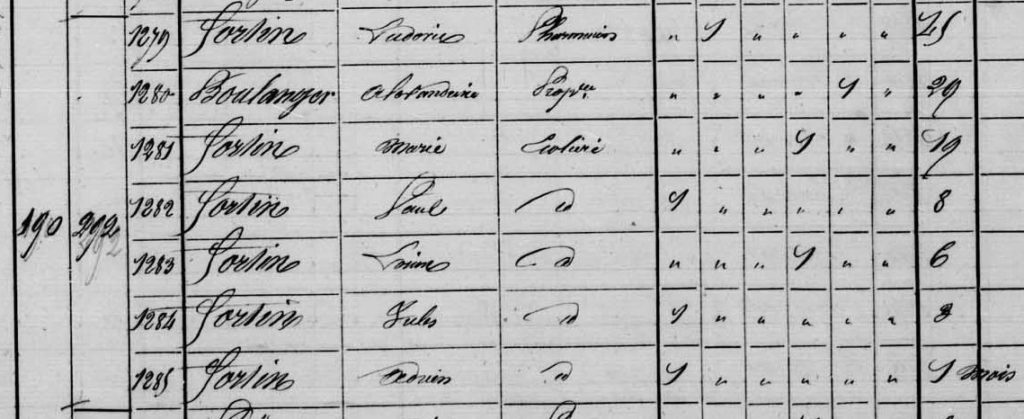 1279 Fortin Ludovic Pharmacien " 1 " " " " 45
1280 Boulanger Alexandrine Prop.re " " " " 1 " 29
1281 Fortin Marie " " " 1 " "
190 292 1282 Fortin Paul d 1 " " " " " 8
1283 Fortin d " " " 1 " " 6
1284 Fortin Jules d 1 " " " " " 3
1285 Fortin Adrien d 1 " " " " " 1 mois